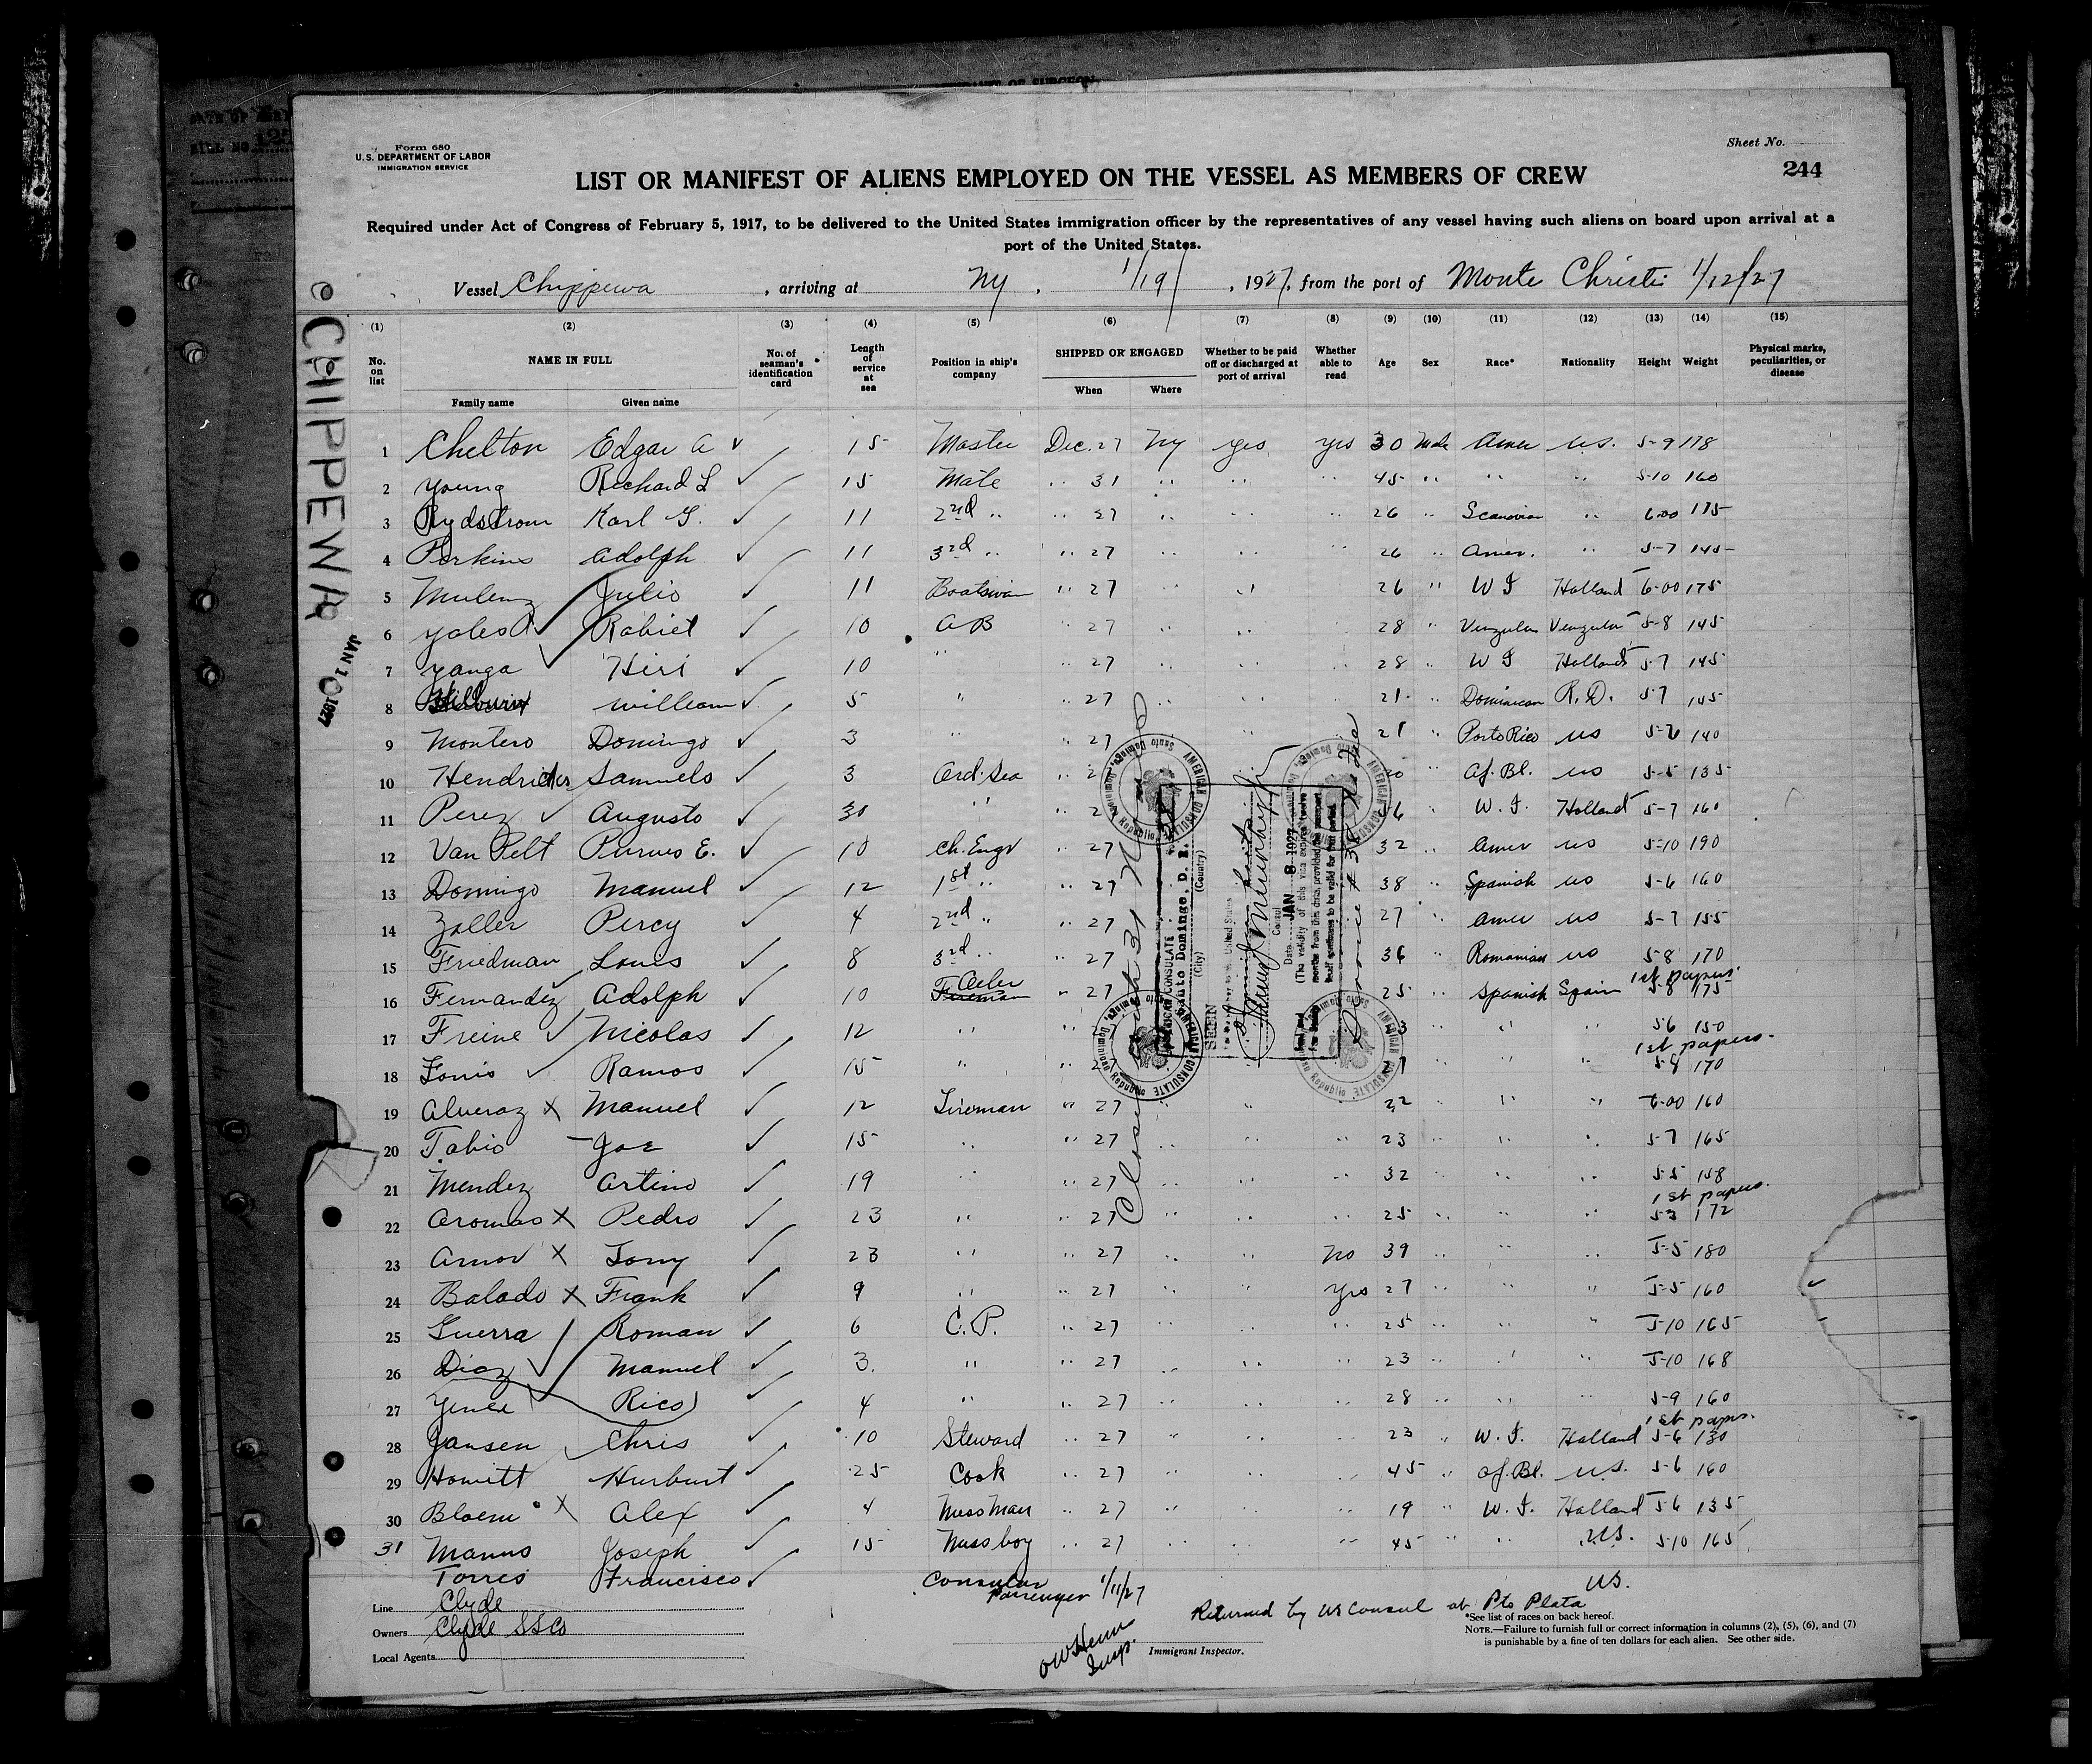 Form 680
U.S. DEPARTMENT OF LABOR
IMMIGRATION SERVICE
Sheet No.
244
LIST OR MANIFEST OF ALIENS EMPLOYED ON THE VESSEL AS MEMBERS OF CREW
Required under Act of Congress of February 5, 1917, to be delivered to the United States immigration officer by the representatives of any vessel having such aliens on board upon arrival at a
port of the United States.
Vessel Chippewa, arriving at NY, 1/19/, 1927, from the port of Monte Christi 1/12/27
CHIPPEWA
JAN 10 1927
(1) (2) (3) (4) (5) (6) (7) (8) (9) (10) (11) (12) (13) (14) (15)
No. on list NAME IN FULL No. of seaman's identification card Length of service at sea Position in ship's company SHIPPED OR ENGAGED Whether to be paid off or discharged at port of arrival Whether able to read Age Sex Race* Nationality Height Weight Physical marks, peculiarities, or disease
Family name Given name When Where
1 Chelton Edgar A 15 Master Dec. 27 NY yes yes 30 Male Amer U.S. 5-9 178
2 Young Richard L 15 Mate " 31 " " " 45 " " " 5-10 160
3 Rydstrom Karl G. 11 2nd " " 27 " " " 26 " " 6-00 175
4 Perkins Adolph 11 3rd " " 27 " " 26 " Amer. " 5-7 145
5 Julio 11 Boatswain " 27 " " 26 " W I Holland 6-00 175
6 10 AB " 27 " " 28 " 5-8 145
7 Yanga Hiri 10 " " 27 " " 28 " W I Holland 5-7 145
8 William 5 " " 27 " " 21 " Dominican R.D. 5-7 145
9 Montero Domingo 3 " " 27 21 " Porto Rico US 5-6 140
10 Hendricks Samuels 3 Ord. Sea " Af. Bl. US 5-5 135
11 Perez Augusto 30 " " " W. I. Holland 5-7 160
12 Van Pelt Purvis E. 10 Ch. Engr " 27 32 " Amer US 5-10 190
13 Domingo Manuel 12 1st " " 27 38 " Spanish US 5-6 160
14 Zoller Percy 4 2nd " " 27 27 " Amer US 5-7 155
15 Friedman Louis 8 3rd " " 27 36 " Romanian US 5-8 170
16 Fernandez Adolph 10 Fireman Oeler " 27 25 " Spanish Spain 1st papers. 5-8 175
17 Freine Nicolas 12 " " " " " 5-6 150
18 Ramos 15 " " " " " 1st papers. 5-8 170
19 Alveraz X Manuel 12 Fireman " 27 " " 32 " " " 6-00 160
20 Fabio Joe 15 " " 27 " " " 23 " " " 5-7 165
21 Mendez Artino 19 " " 27 " " " 32 " " " 5-5 158
22 Aromas X Pedro 23 " " 27 " " " 25 " " " 1st papers. 5-3 172
23 Amor X Tony 23 " " 27 " " No 39 " " " 5-5 180
24 Balado X Frank 9 " " 27 " " Yes 27 " " " 5-5 160
25 Guerra Roman 6 C.P. " 27 " " " 25 " " " 5-10 165
26 Diaz Manuel 3. " " 27 " " " 23 " " " 5-10 168
27 Rico 4 " " 27 " " " 28 " " " 5-9 160
28 Jansen Chris 10 Steward " 27 " " " 23 " W. I. Holland 1st papers. 5-6 130
29 Howitt Hurburt 25 Cook " 27 " " " 45 " Af. Bl. U.S. 5-6 160
30 Bloem X Alex 4 Mess Man " 27 " " " 19 " W. I. Holland 5-6 135
31 Manus Joseph 15 Mess boy " 27 " " " 45 " " U.S. 5-10 165
Torres Francisco Consular Passenger 1/11/27 US.
Returned by US Consul at Pto Plata
AMERICAN CONSULATE
Santo Domingo, D. R.
(City) (Country)
SEEN
Consul
Date JAN 8 1927
Line Clyde
Owners Clyde SS Co
Local Agents
Insp.
Immigrant Inspector.
*See list of races on back hereof.
NOTE.—Failure to furnish full or correct information in columns (2), (5), (6), and (7)
is punishable by a fine of ten dollars for each alien. See other side.